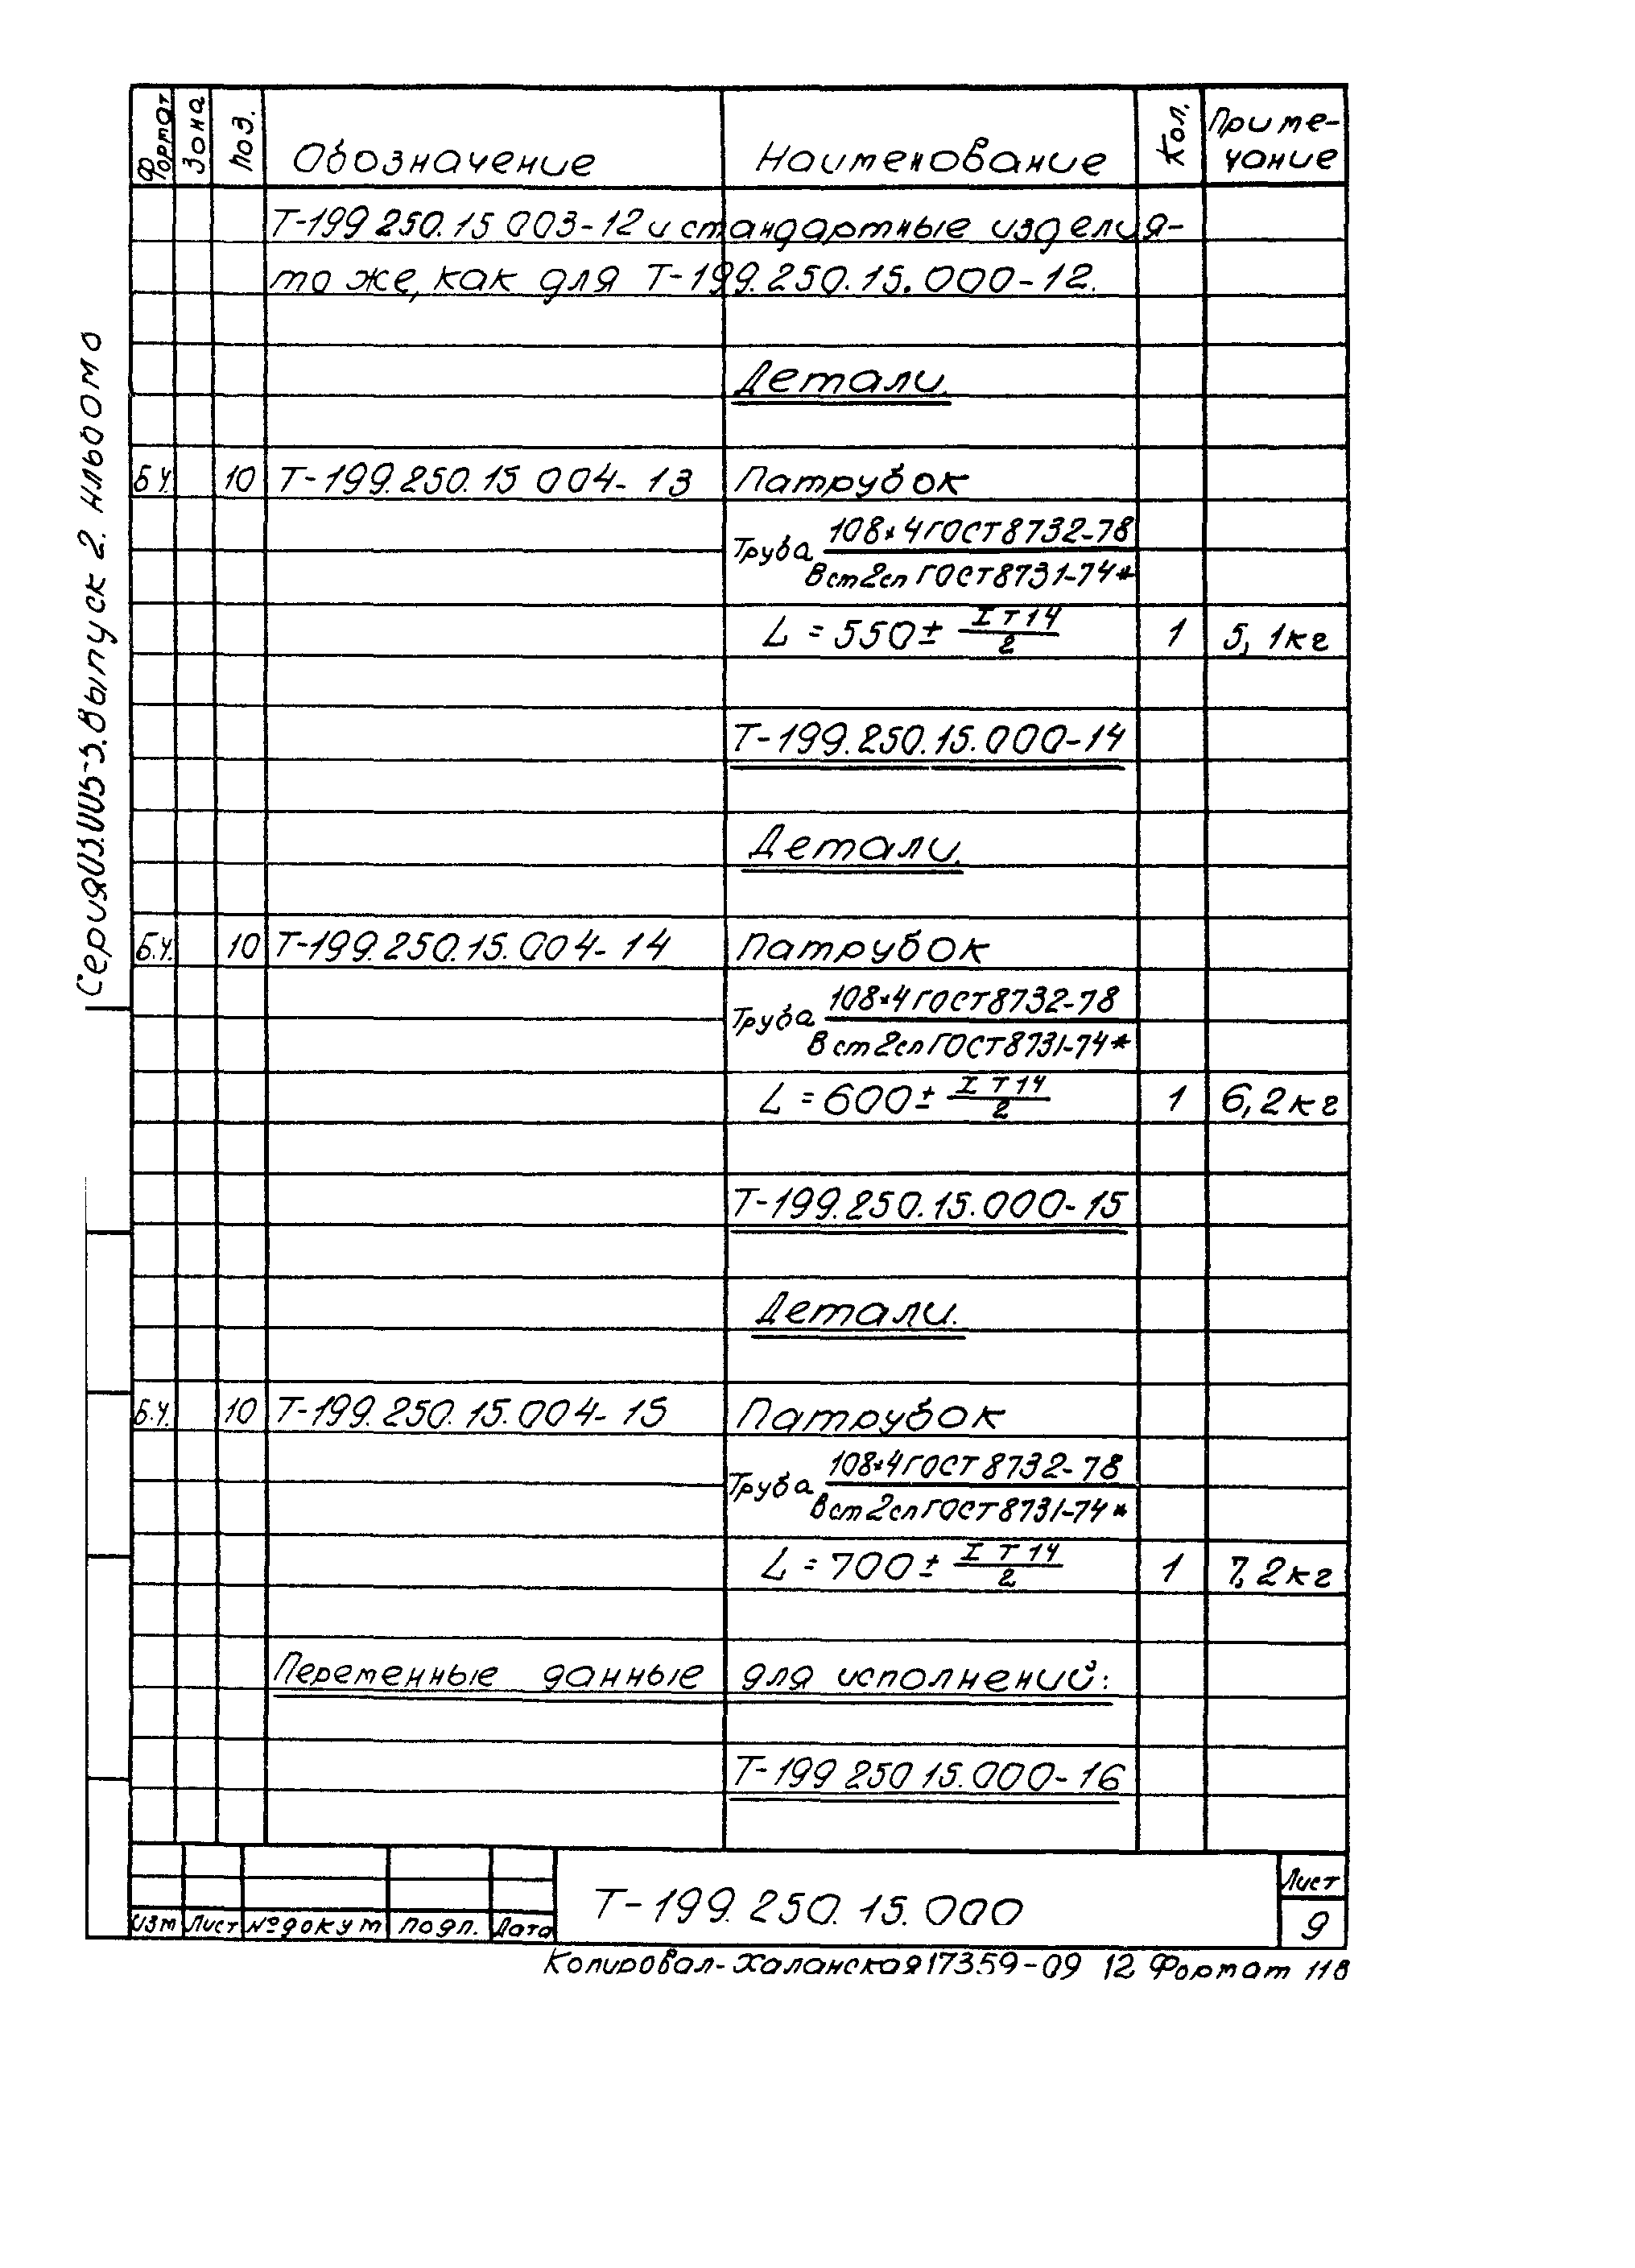 Формат Зона Поз. Обозначение Наименование Кол. Приме-
чание
Т-199 250.15 003-12 и стандартные изделия-
то же, как для Т-199.250.15.000-12.
Детали.
Б.Ч. 10 Т-199.250.15 004-13 Патрубок
Труба 108×4 ГОСТ 8732-78
В ст 2сп ГОСТ 8731-74*
L = 550 ± IT14/2 1 5,1кг
Т-199.250.15.000-14
Детали.
Б.Ч. 10 Т-199.250.15.004-14 Патрубок
Труба 108×4 ГОСТ 8732-78
В ст 2сп ГОСТ 8731-74*
L = 600 ± IT14/2 1 6,2кг
Т-199.250.15.000-15
Детали.
Б.Ч. 10 Т-199.250.15.004-15 Патрубок
Труба 108×4 ГОСТ 8732-78
В ст 2сп ГОСТ 8731-74*
L = 700 ± IT14/2 1 7,2кг
Переменные данные для исполнений:
Т-199 250 15.000-16
Изм Лист № докум подп. Дата
Т-199.250.15.000
Лист
9
Копировал-Халанская 17359-09 12 Формат 11В
Выпуск 2.